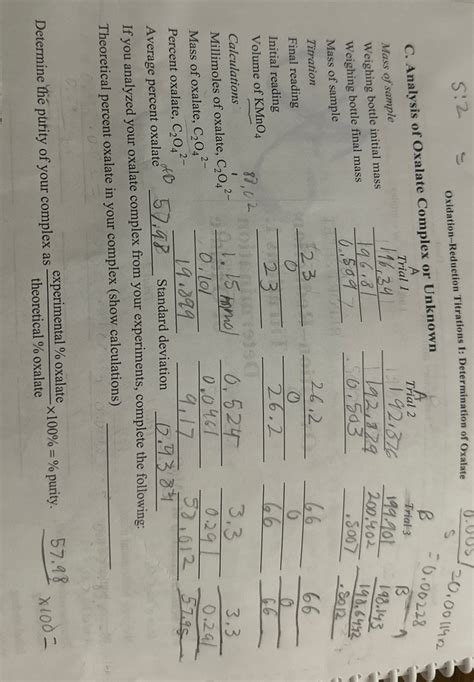 Oxidation–Reduction Titrations I: Determination of Oxalate
C. Analysis of Oxalate Complex or Unknown
A A B B
Mass of sample Trial 1 Trial 2 Trial 3
Weighing bottle initial mass 196.34 192.376 199.901 198.143
Weighing bottle final mass 196.81 192.879 200.402 198.6442
Mass of sample 0.5097 0.503 .5007 .5012
Titration
Final reading 23 26.2 66 66
Initial reading 0 0 0 0
Volume of KMnO4 23 26.2 66 66
88.02
Calculations
Millimoles of oxalate, C₂O₄²⁻ 1.15 mmol 0.5247 3.3 3.3
Mass of oxalate, C₂O₄²⁻ 0.101 0.0461 0.291 0.291
Percent oxalate, C₂O₄²⁻ 19.899 9.17 58.012 57.95
Average percent oxalate 57.98 Standard deviation
If you analyzed your oxalate complex from your experiments, complete the following:
Theoretical percent oxalate in your complex (show calculations)
Determine the purity of your complex as experimental % oxalate / theoretical % oxalate ×100% = % purity. 57.98 x100=